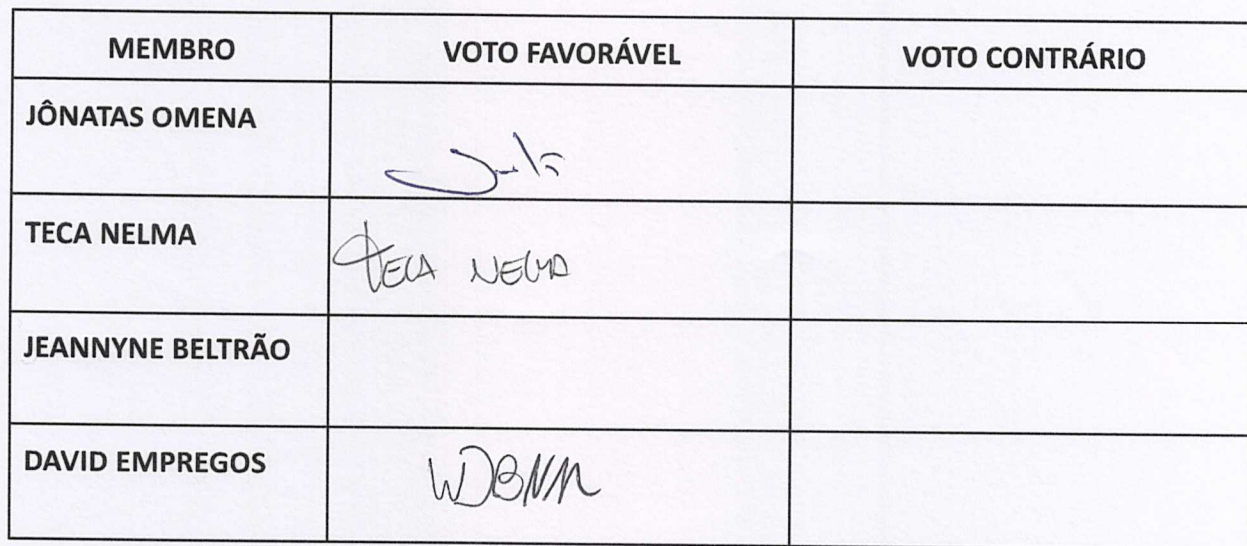 MEMBRO VOTO FAVORÁVEL VOTO CONTRÁRIO
JÔNATAS OMENA
TECA NELMA TECA NELMA
JEANNYNE BELTRÃO
DAVID EMPREGOS